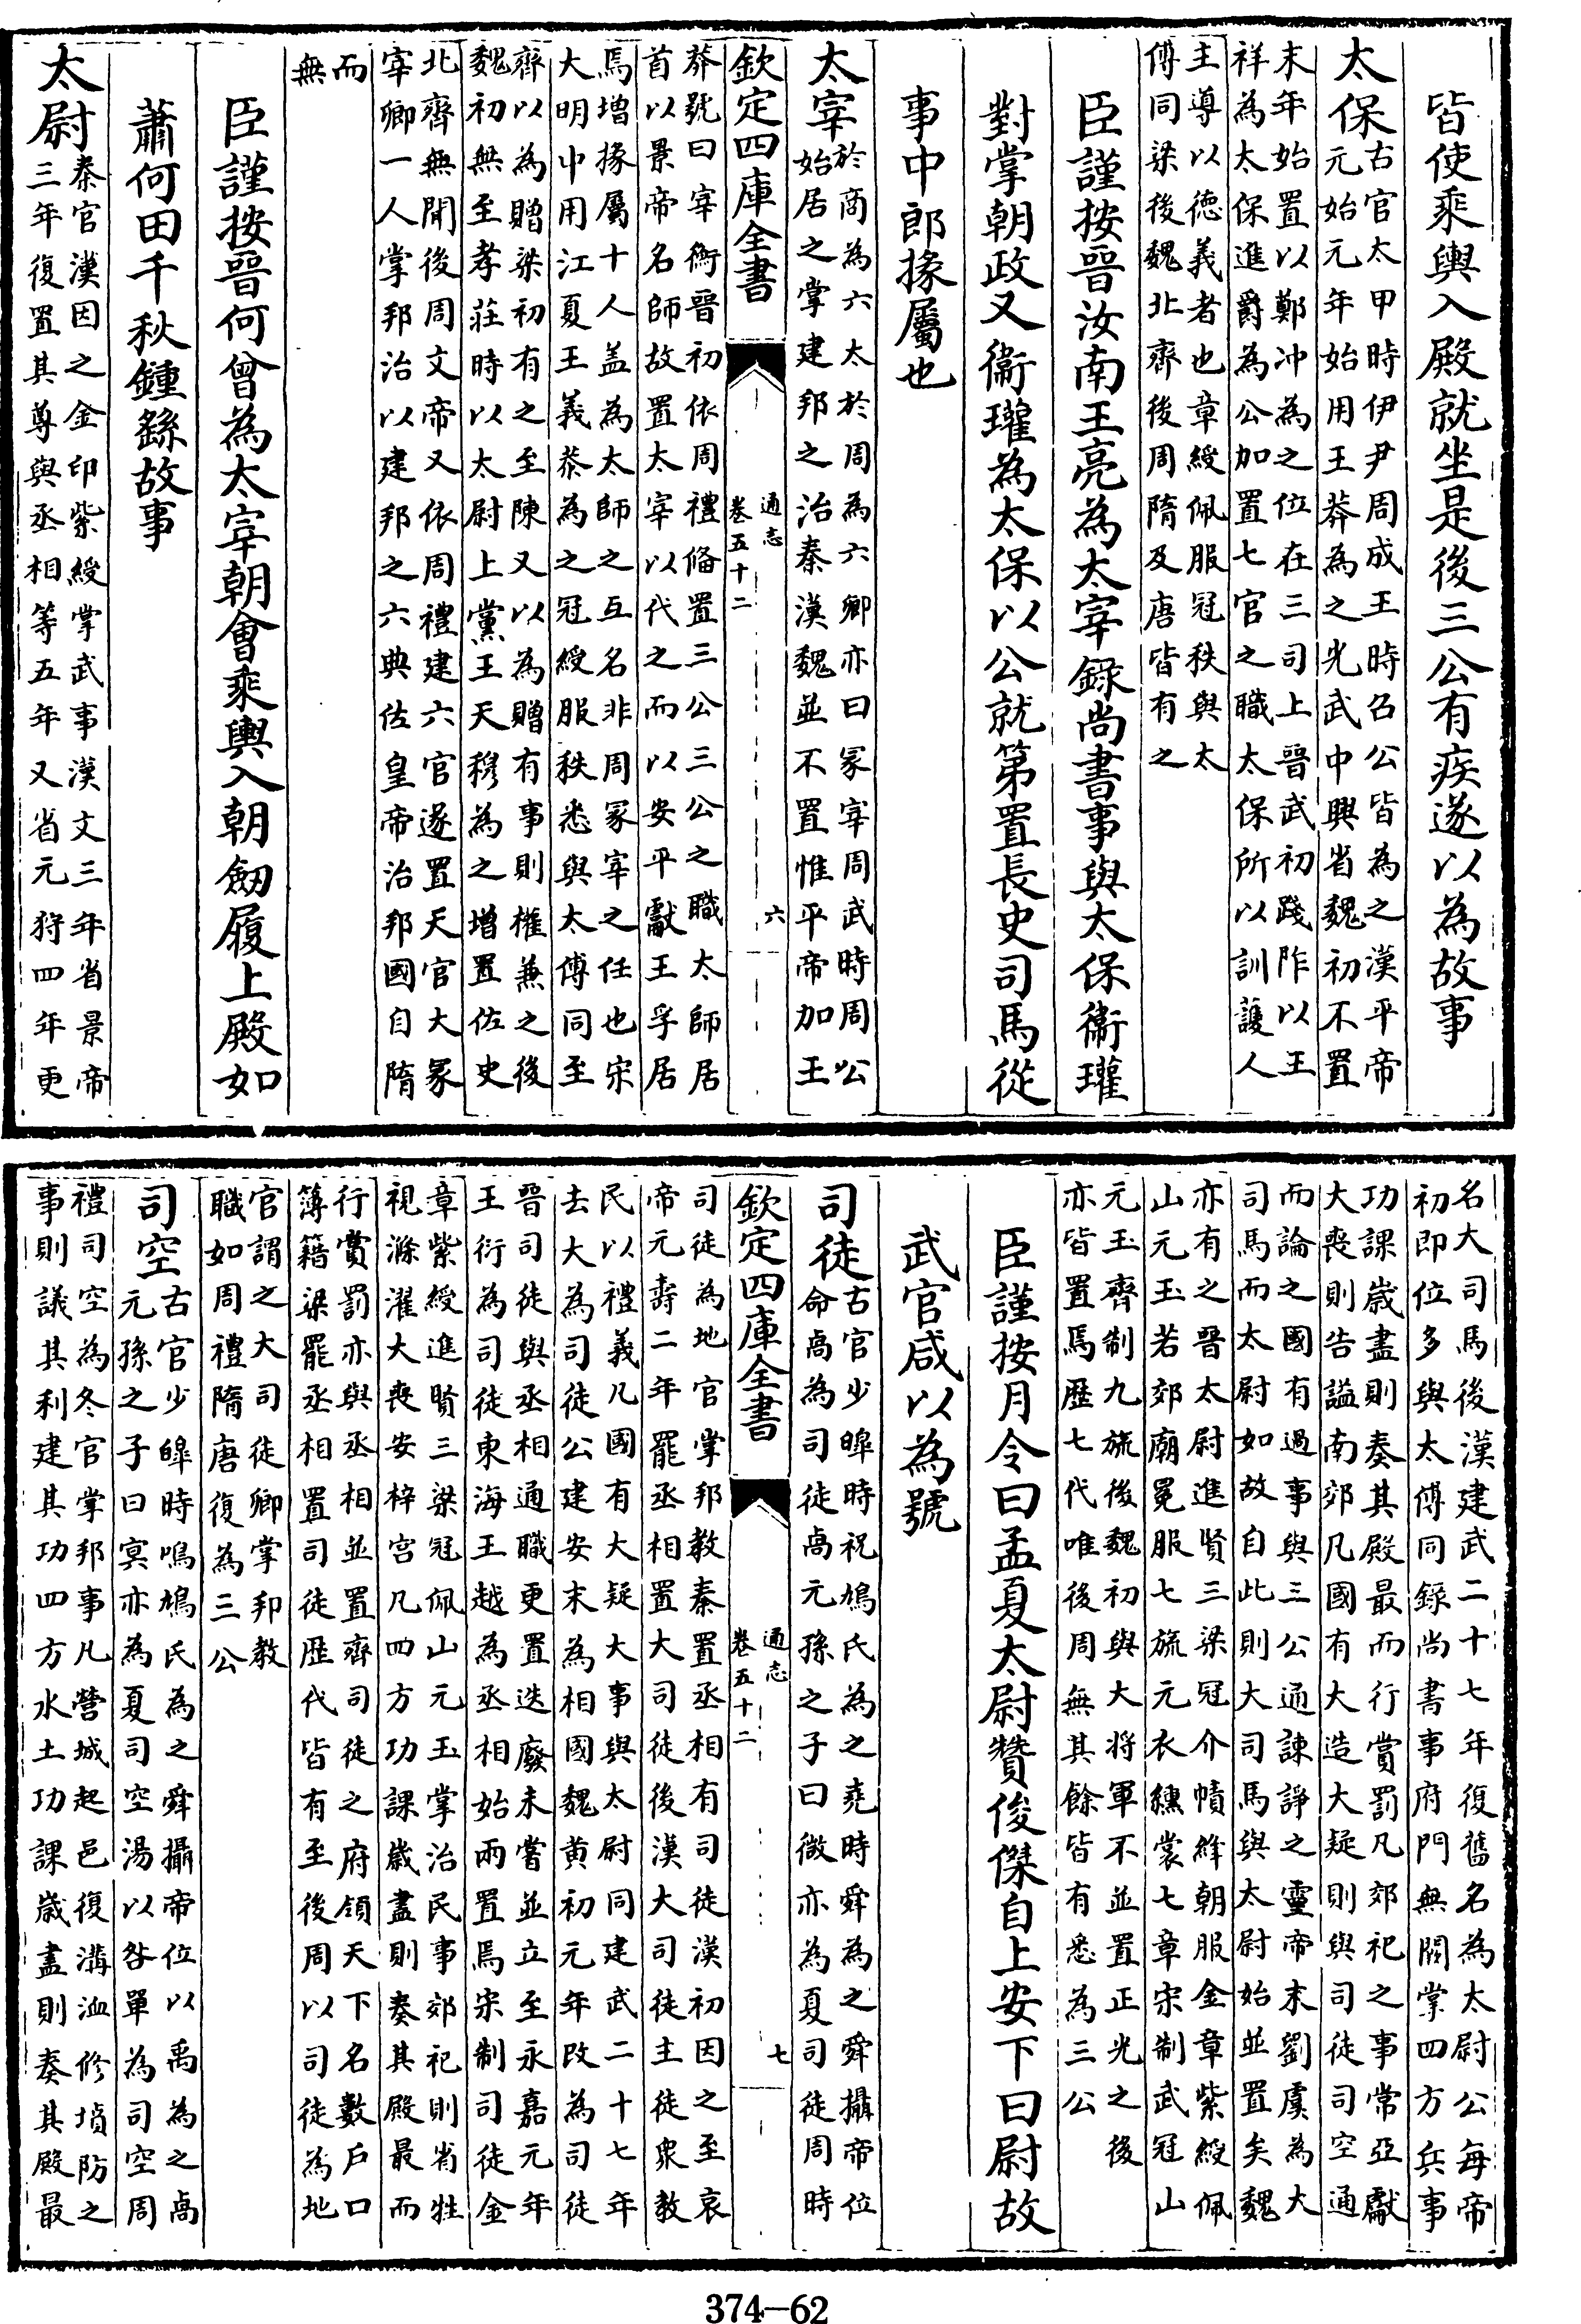 皆使乘輿入殿就坐是後三公有疾遂以為故事
太保古官太甲時伊尹周成王時召公皆為之漢平帝
元始元年始用王莽為之光武中興省魏初不置
末年始置以鄭冲為之位在三司上晉武初踐阼以王
祥為太保進爵為公加置七官之職太保所以訓護人
主導以德義者也章綬佩服冠秩與太
傅同梁後魏北齊後周隋及唐皆有之
臣謹按晉汝南王亮為太宰錄尚書事與太保衞瓘
對掌朝政又衞瓘為太保以公就第置長史司馬從
事中郎掾屬也
太宰於商為六太於周為六卿亦曰冢宰周武時周公
始居之掌建邦之治秦漢魏並不置惟平帝加王
欽定四庫全書
通志
卷五十二
六
莽號曰宰衡晉初依周禮俻置三公三公之職太師居
首以景帝名師故置太宰以代之而以安平獻王孚居
馬增掾屬十人盖為太師之互名非周冢宰之任也宋
大明中用江夏王義恭為之冠綬服秩悉與太傅同至
齊以為贈梁初有之至陳又以為贈有事則權兼之後
魏初無至孝莊時以太尉上黨王天穆為之增置佐史
北齊無聞後周文帝又依周禮建六官遂置天官大冢
宰卿一人掌邦治以建邦之六典佐皇帝治邦國自隋
而
無
臣謹按晉何曾為太宰朝會乘輿入朝劒履上殿如
蕭何田千秋鍾繇故事
太尉秦官漢因之金印紫綬掌武事漢文三年省景帝
三年復置其尊與丞相等五年又省元狩四年更
名大司馬後漢建武二十七年復舊名為太尉公每帝
初即位多與太傅同錄尚書事府門無闕掌四方兵事
功課歲盡則奏其殿最而行賞罰凡郊祀之事常亞獻
大喪則告謚南郊凡國有大造大疑則與司徒司空通
而論之國有過事與三公通諫諍之靈帝末劉虞為大
司馬而太尉如故自此則大司馬與太尉始並置矣魏
亦有之晉太尉進賢三梁冠介幘絳朝服金章紫綬佩
山元玉若郊廟冕服七旒元衣纁裳七章宋制武冠山
元玉齊制九旒後魏初與大将軍不並置正光之後
亦皆置馬歷七代唯後周無其餘皆有悉為三公
臣謹按月令曰孟夏太尉贊俊傑自上安下曰尉故
武官咸以為號
司徒古官少皞時祝鳩氏為之堯時舜為之舜攝帝位
命卨為司徒卨元孫之子曰微亦為夏司徒周時
欽定四庫全書
通志
卷五十二
七
司徒為地官掌邦教秦置丞相有司徒漢初因之至哀
帝元壽二年罷丞相置大司徒後漢大司徒主徒衆教
民以禮義凡國有大疑大事與太尉同建武二十七年
去大為司徒公建安末為相國魏黃初元年改為司徒
晉司徒與丞相通職更置迭廢未嘗並立至永嘉元年
王衍為司徒東海王越為丞相始兩置焉宋制司徒金
章紫綬進賢三梁冠佩山元玉掌治民事郊祀則省牲
視滌濯大喪安梓宮凡四方功課歲盡則奏其殿最而
行賞罰亦與丞相並置齊司徒之府領天下名數户口
簿籍梁罷丞相置司徒歷代皆有至後周以司徒為地
官謂之大司徒卿掌邦教
職如周禮隋唐復為三公
司空古官少皞時鳲鳩氏為之舜攝帝位以禹為之卨
元孫之子曰冥亦為夏司空湯以咎單為司空周
禮司空為冬官掌邦事凡營城起邑復溝洫修墳防之
事則議其利建其功四方水土功課歲盡則奏其殿最
374-62